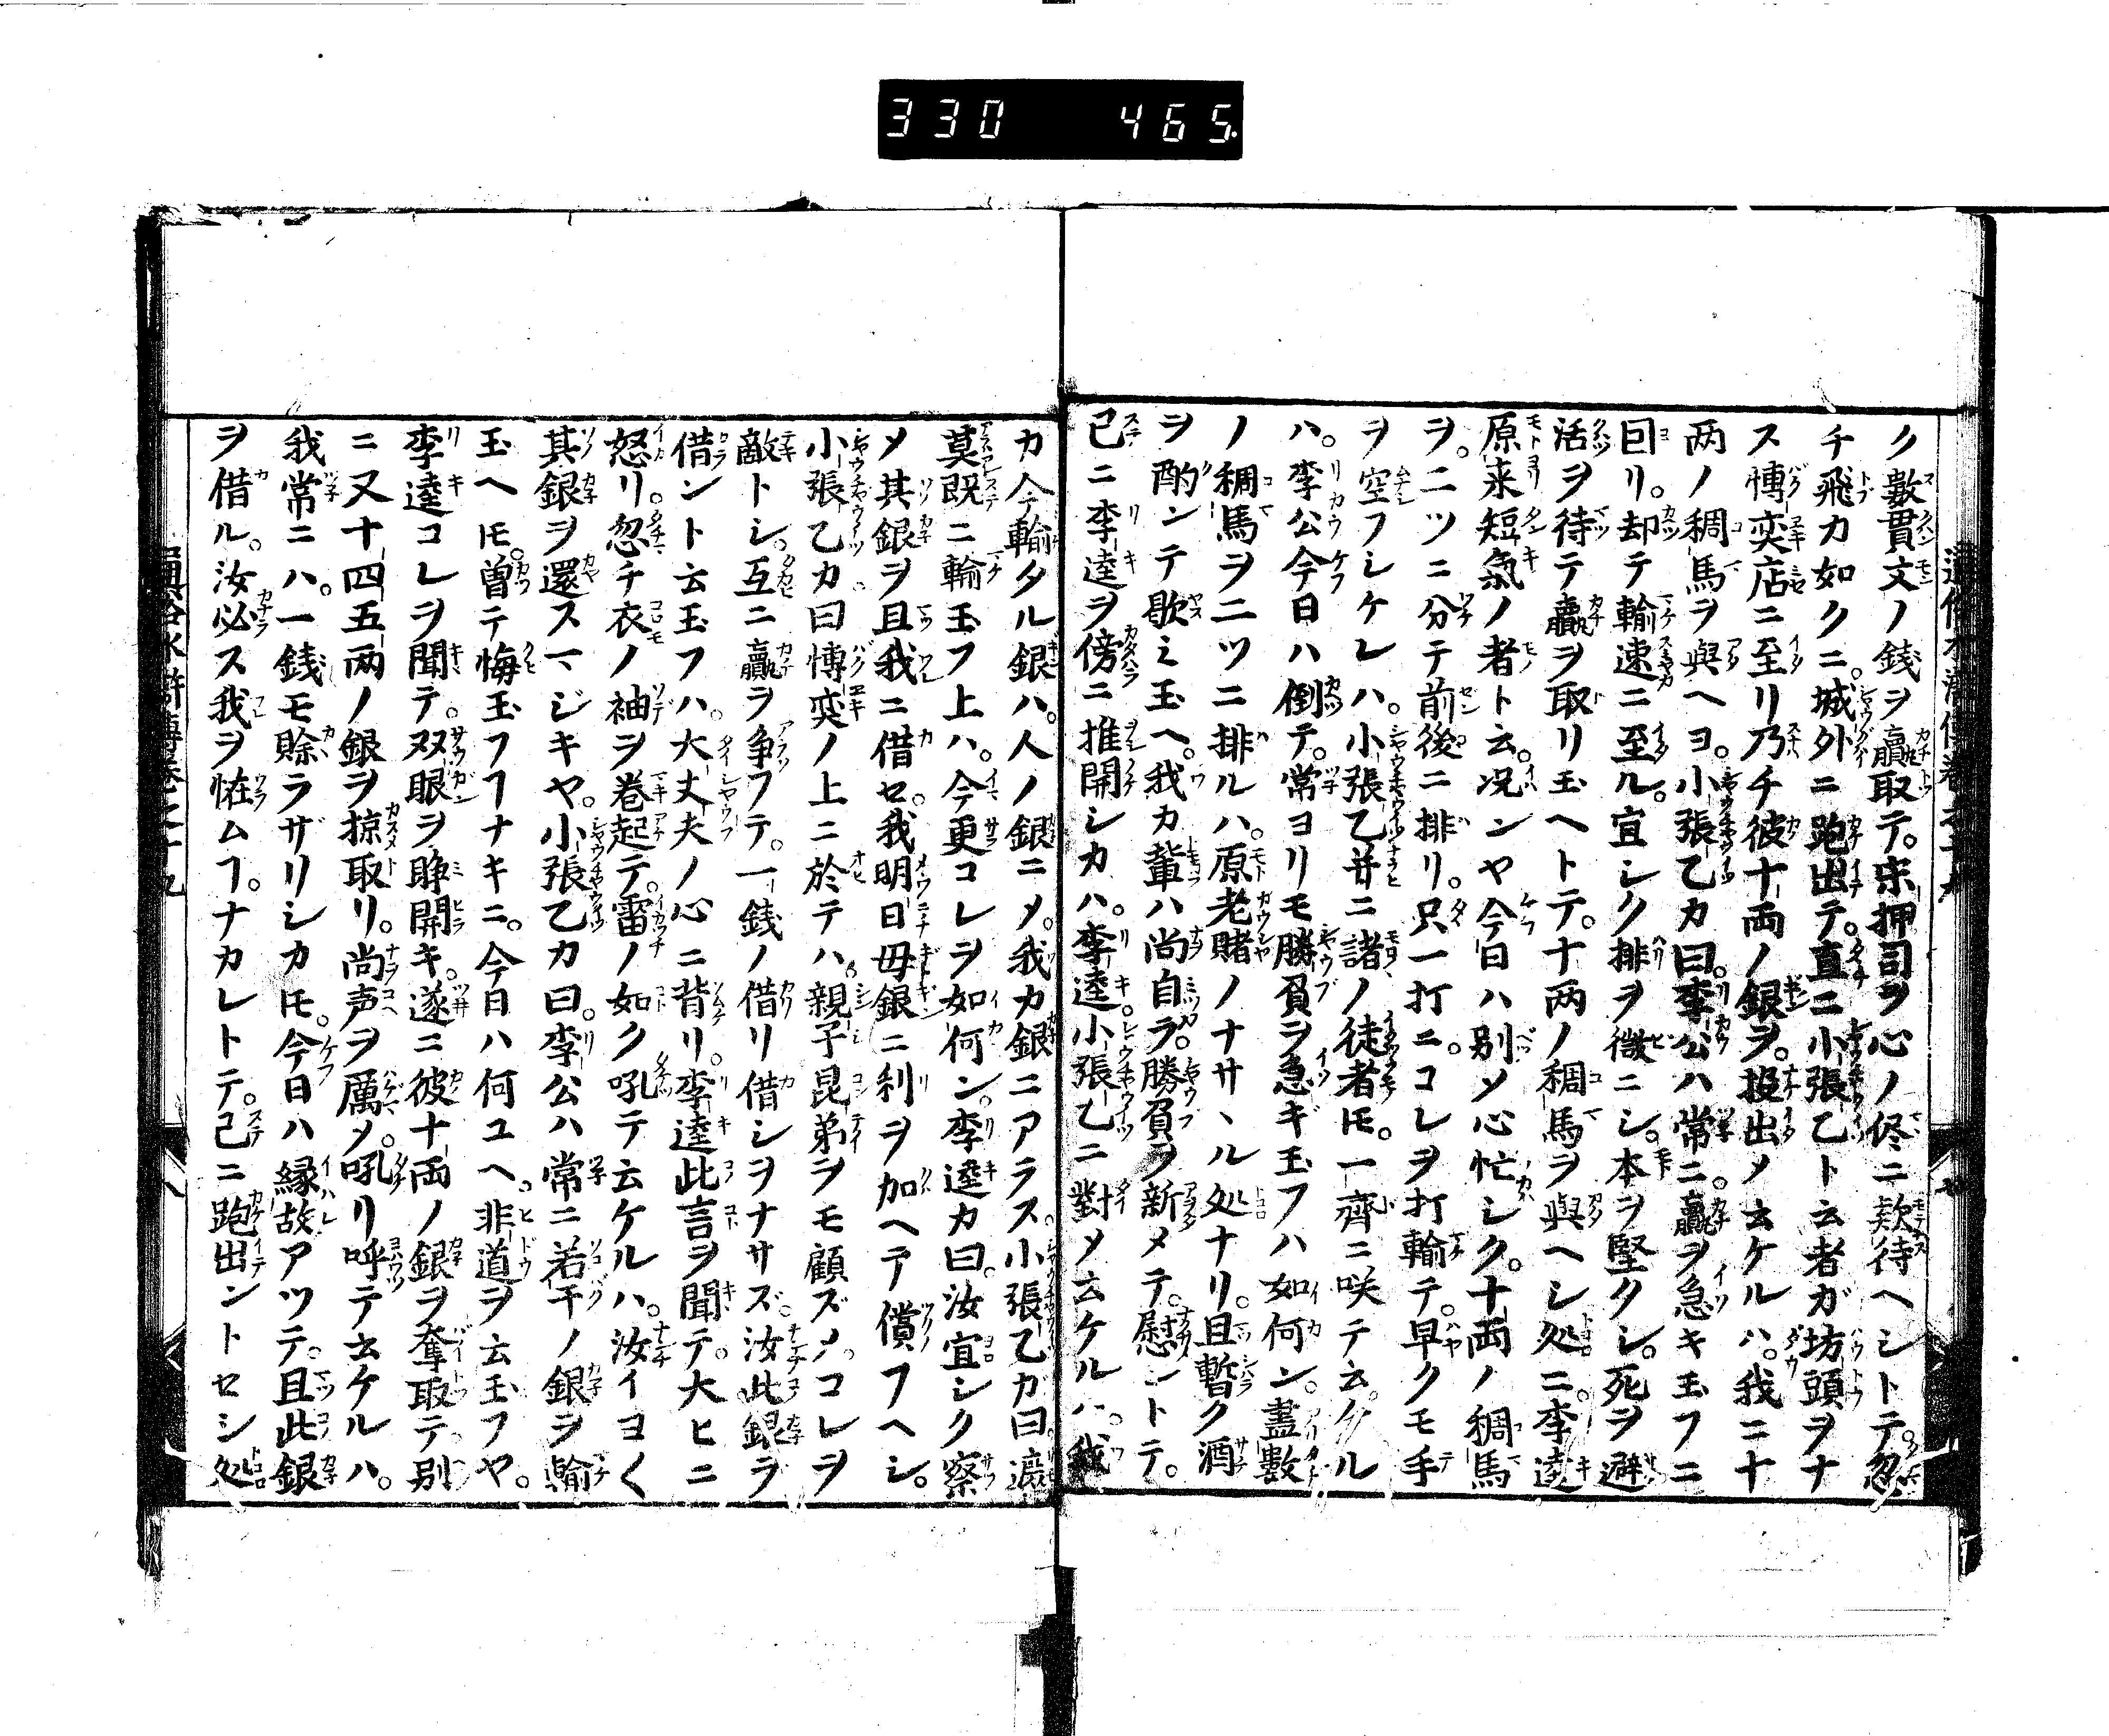 330 465.
ク數貫文ノ銭ヲ贏取テ。宋押司ヲ心ノ侭ニ欵待ヘシトテ。忽
チ飛カ如クニ。城外ニ跑出テ。直ニ小張乙ト云者ガ坊頭ヲナ
ス博奕店ニ至リ乃チ彼十両ノ銀ヲ。投出メ云ケルハ。我ニ十
両ノ稠馬ヲ與ヘヨ。小張乙カ曰。李公ハ常ニ。贏ヲ急キ玉フニ
囙リ。却テ輸速ニ至ル。宜シク排ヲ微ニシ。本ヲ堅クシ。死ヲ避
活ヲ待テ贏ヲ取リ玉ヘトテ。十両ノ稠馬ヲ與ヘシ処ニ。李逵
原来短氣ノ者ト云。况ンヤ今日ハ別メ心忙シク。十両ノ稠馬
ヲ。二ツニ分テ前後ニ排リ。只一打ニ。コレヲ打輸テ。早クモ手
ヲ空フシケレハ。小張乙并ニ諸ノ徒者𪜈。一齊ニ咲テ云ケル
ハ。李公今日ハ倒テ。常ヨリモ勝負ヲ急ギ玉フハ如何ン。盡數
ノ稠馬ヲ二ツニ排ルハ。原老賭ノナサヽル処ナリ。且暫ク酒
ヲ酌ンテ歇ミ玉ヘ。我カ輩ハ尚自ラ。勝負ヲ新メテ。慰ントテ。
已ニ李逵ヲ傍ニ推開シカハ。李逵小張乙ニ對メ云ケルハ。我
カ今輸タル銀ハ。人ノ銀ニメ。我カ銀ニアラス小張乙カ曰。遮
莫既ニ輸玉フ上ハ。今更コレヲ如何ン。李逵カ曰。汝宜シク察
メ其銀ヲ且我ニ借セ。我明日毋銀ニ利ヲ加ヘテ償フヘシ。
小張乙カ曰博奕ノ上ニ於テハ。親子昆弟ヲモ顧ズメ。コレヲ
敵トシ。互ニ贏ヲ争フテ。一銭ノ借リ借シヲナサズ。汝此銀ヲ
借ント云玉フハ。大丈夫ノ心ニ背リ。李逵此言ヲ聞テ。大ヒニ
怒リ。忽チ衣ノ袖ヲ巻起テ。雷ノ如ク吼テ云ケルハ。汝イヨく
其銀ヲ還スマジキヤ。小張乙カ曰。李公ハ常ニ若干ノ銀ヲ輸
玉ヘ𪜈。曽テ悔玉フヿナキニ。今日ハ何ユヘ。非道ヲ云玉フヤ。
李逵コレヲ聞テ。双眼ヲ睁開キ。遂ニ彼十両ノ銀ヲ奪取テ別
ニ又十四五両ノ銀ヲ掠取リ。尚声ヲ厲メ。吼リ呼テ云ケルハ。
我常ニハ。一銭モ賒ラザリシカ𪜈。今日ハ縁故アツテ。且此銀
ヲ借ル。汝必ス我ヲ恠ムヿ。ナカレトテ。已ニ跑出ントセシ処